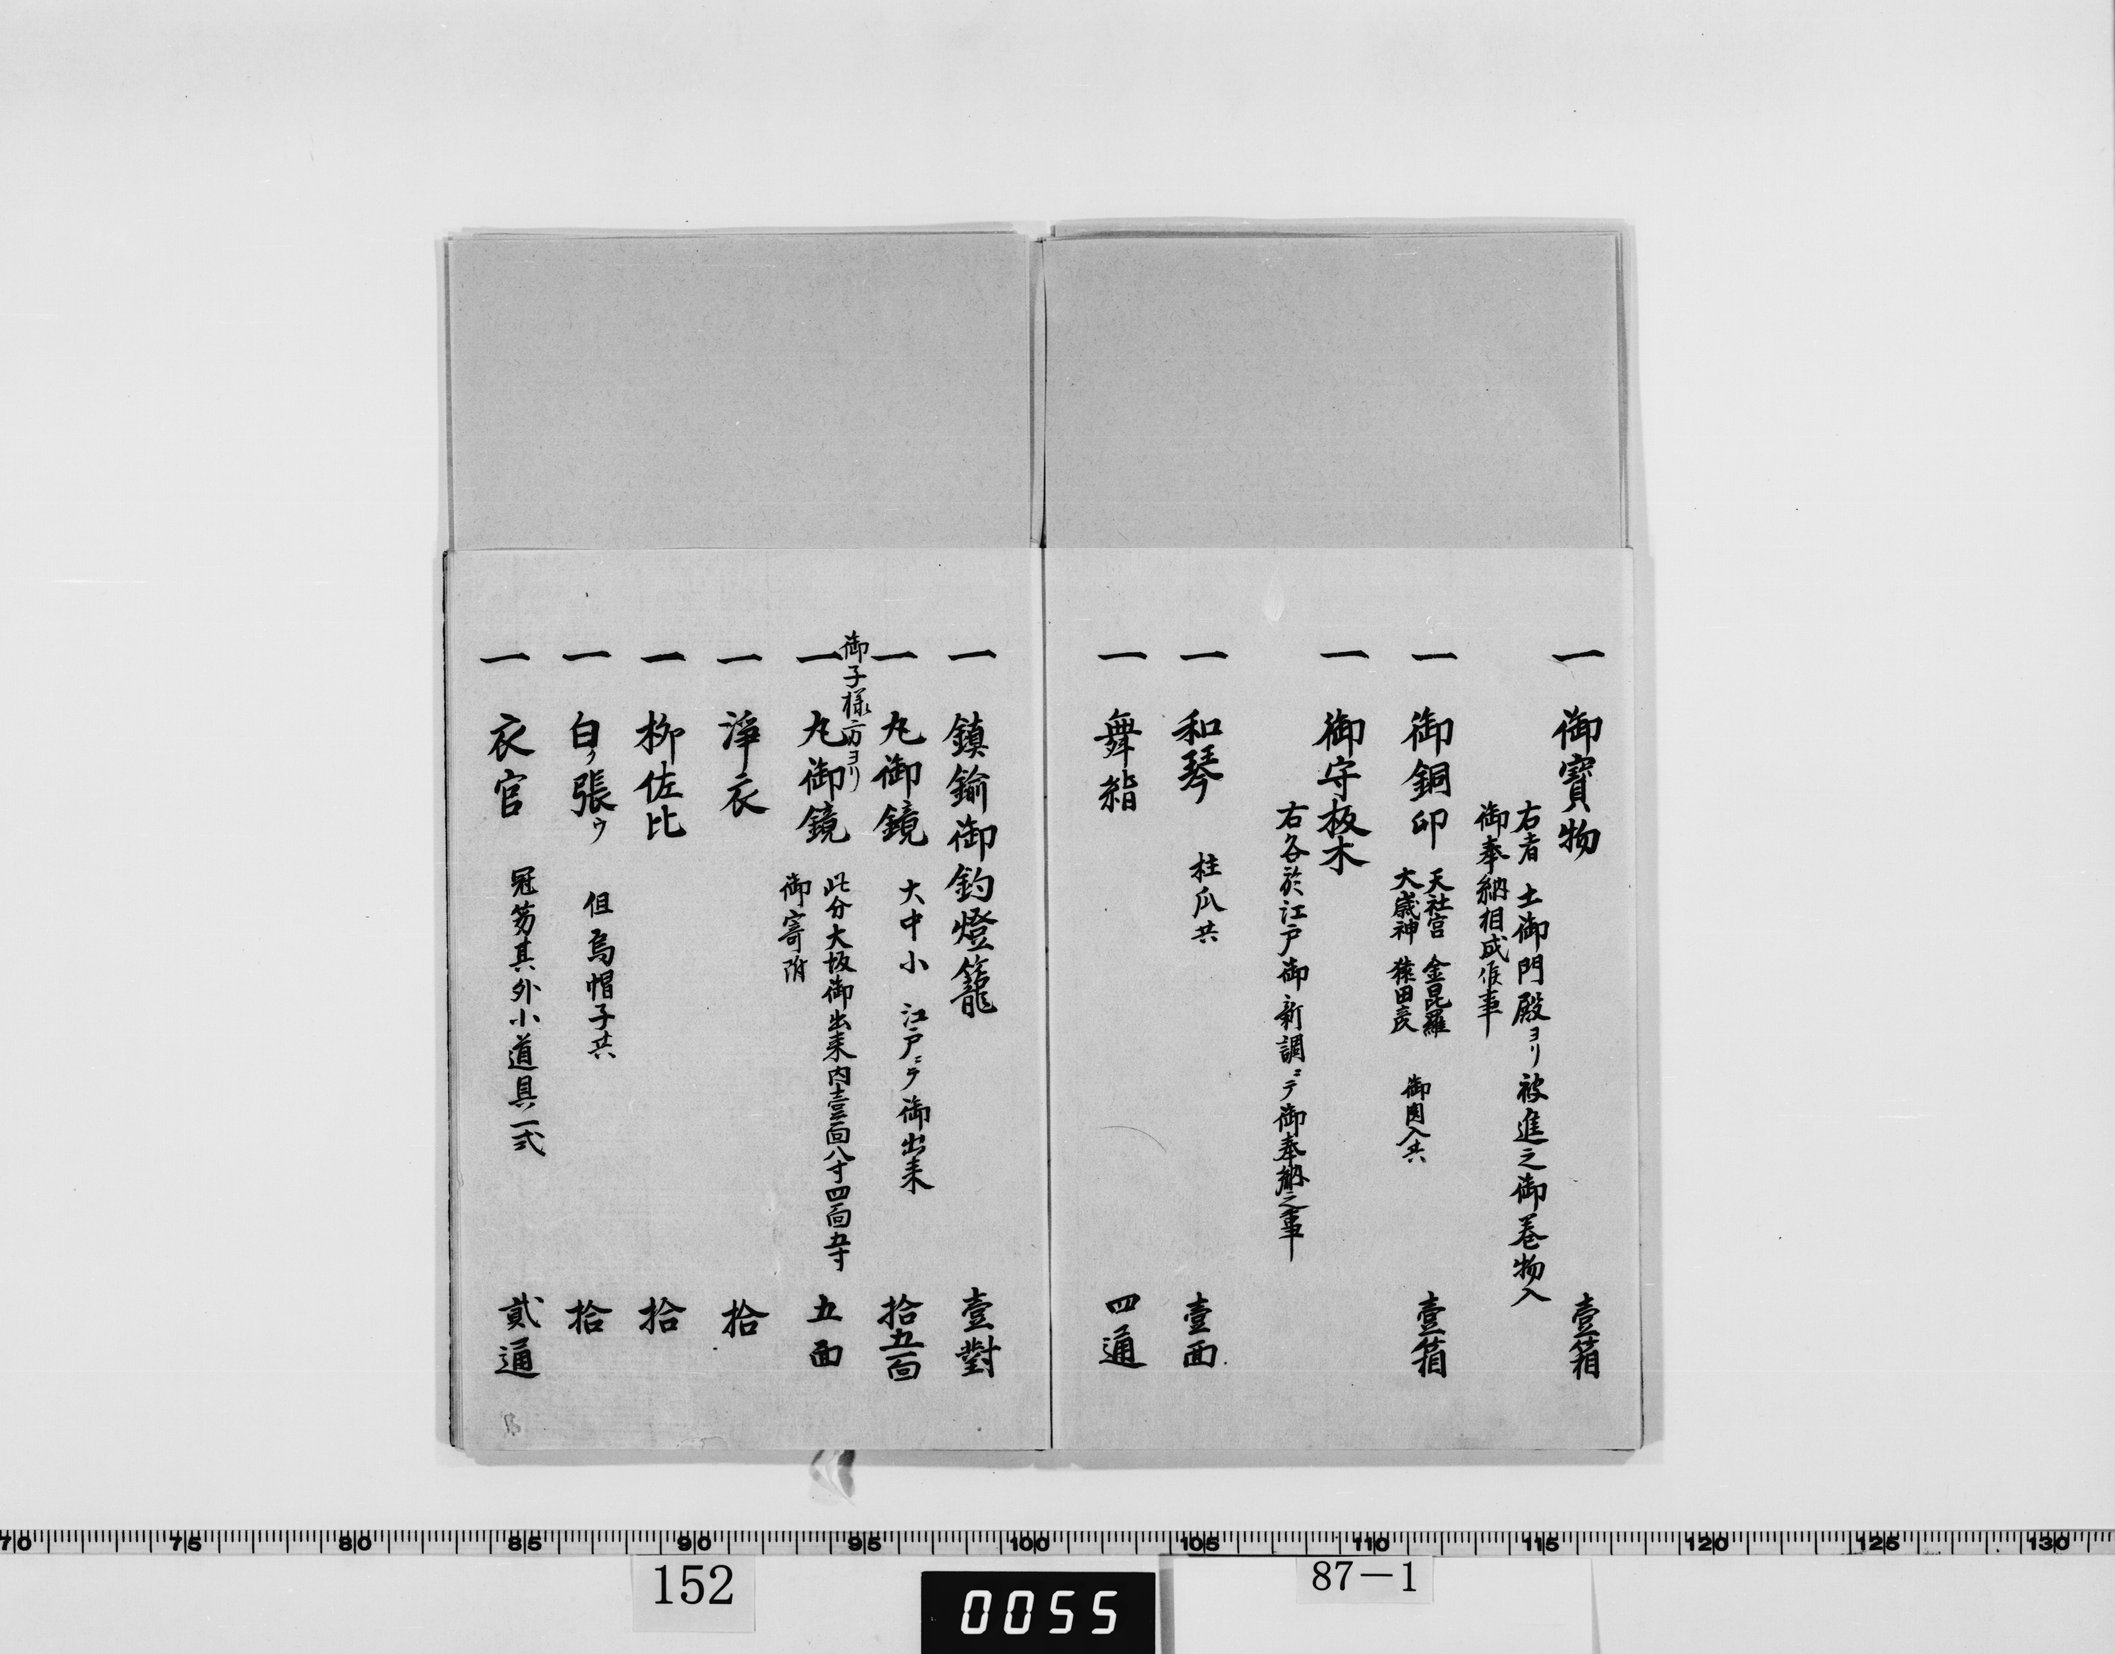 一 御寳物 壹箱
右者 土御門殿ヨリ被進之御巻物入
御奉納相成候事
一 御銅印 天社宮 金毘羅 御肉入共 壹箱
大歳神 猿田彦
一 御守板木
右各於江戸御新調ニテ御奉納之事
一 和琴 柱爪共 壹面
一 舞 四通
一 鎮鍮御釣燈籠 壹對
一 丸御鏡 大中小 江戸ニテ御出来 拾五面
御子様方ヨリ
一 丸御鏡 此分大坂御出来内壹面八寸四面五寸 五面
御寄附
一 淨衣 拾
一 柳佐比 拾
一 白ラ張ウ 但烏帽子共 拾
一 衣官 冠笏其外小道具一式 貳通
70 75 80 85 90 95 100 105 110 115 120 125 130
152
0055
87－1